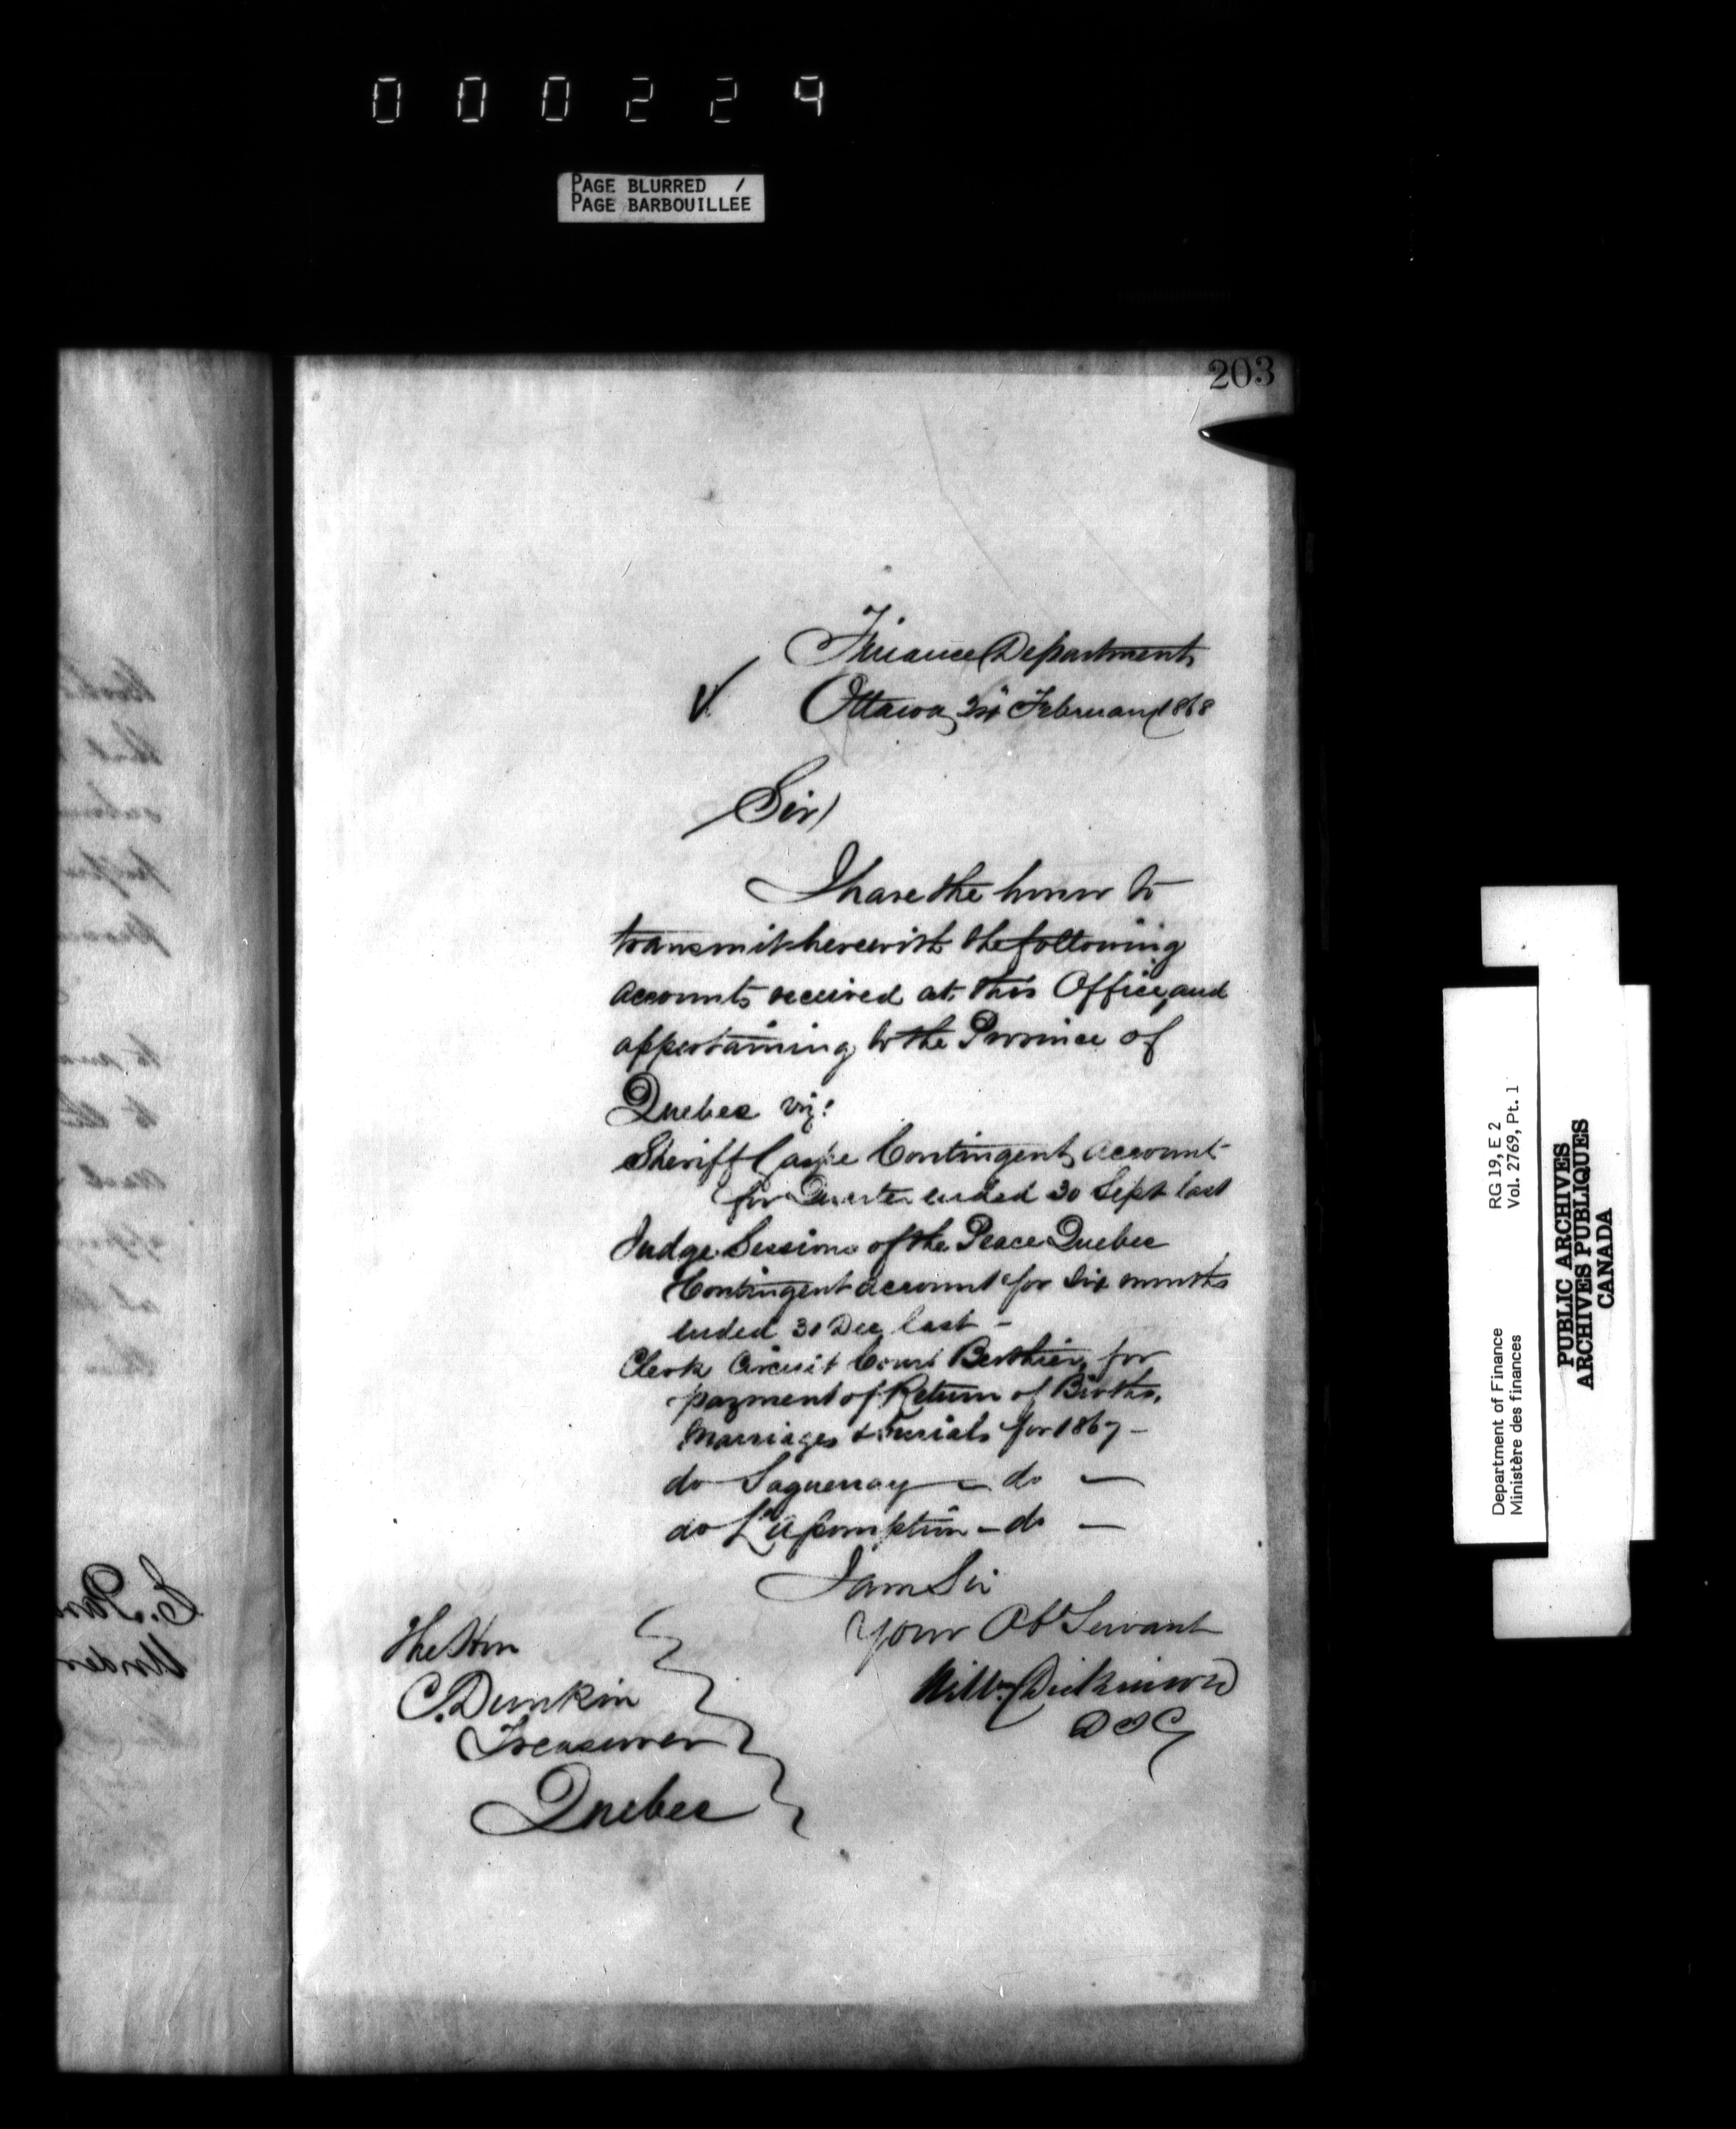 000229
PAGE BLURRED /
PAGE BARBOUILLEE
203
Finance Department
Ottawa, February 1868
Sir,
I have the honor to
transmit herewith the following
accounts received at this Office, and
appertaining to the Province of
Quebec viz:
Sheriff Gaspe Contingent account
for Quarter ended 30 Sept last
Judge Sessions of the Peace Quebec
Contingent account for Six months
ended 31 Dec last –
Clerk Circuit Court Berthier, for
payment of Return of Births,
Marriages & Burials for 1867 –
do Saguenay – do –
do L'Assomption – do –
I am Sir
Your Obt Servant
Willm Dickinson
D I G
The Hon
C. Dunkin
Treasurer
Quebec
Under
Department of Finance RG 19, E 2
Ministère des finances Vol. 2769, Pt. 1
PUBLIC ARCHIVES
ARCHIVES PUBLIQUES
CANADA